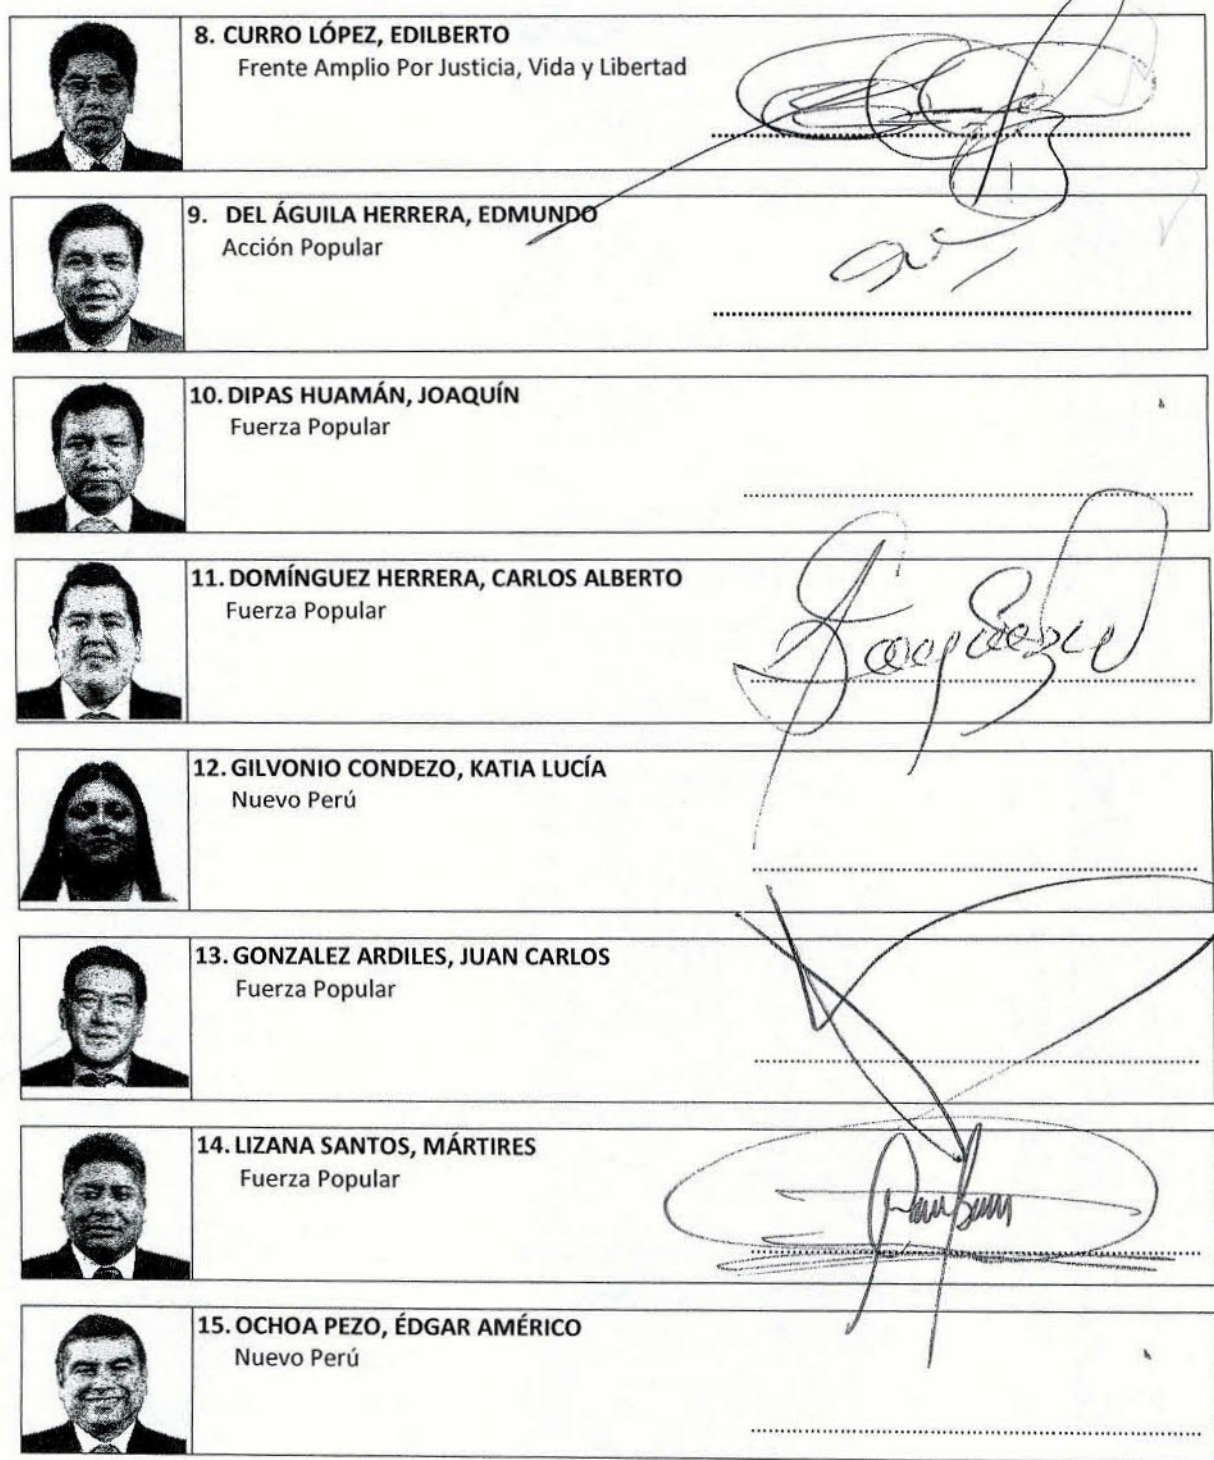 8. CURRO LÓPEZ, EDILBERTO
Frente Amplio Por Justicia, Vida y Libertad
9. DEL ÁGUILA HERRERA, EDMUNDO
Acción Popular
10. DIPAS HUAMÁN, JOAQUÍN
Fuerza Popular
11. DOMÍNGUEZ HERRERA, CARLOS ALBERTO
Fuerza Popular
12. GILVONIO CONDEZO, KATIA LUCÍA
Nuevo Perú
13. GONZALEZ ARDILES, JUAN CARLOS
Fuerza Popular
14. LIZANA SANTOS, MÁRTIRES
Fuerza Popular
15. OCHOA PEZO, ÉDGAR AMÉRICO
Nuevo Perú